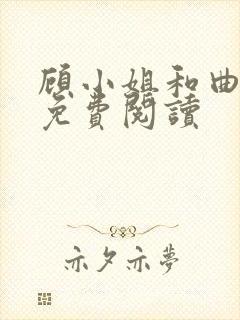 顾小姐和曲
免费阅读
亦夕亦夢